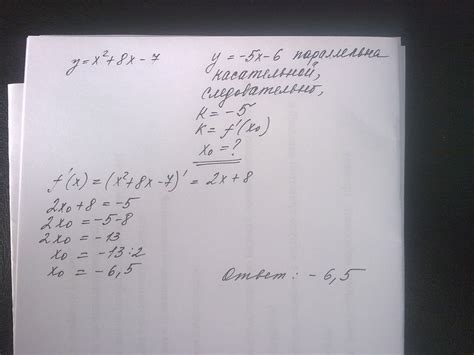 y = x² + 8x - 7
y = -5x - 6 параллельна
касательной,
следовательно,
K = -5
K = f'(x₀)
x₀ = ?
f'(x) = (x² + 8x - 7)' = 2x + 8
2x₀ + 8 = -5
2x₀ = -5-8
2x₀ = -13
x₀ = -13:2
x₀ = -6,5
Ответ: -6,5